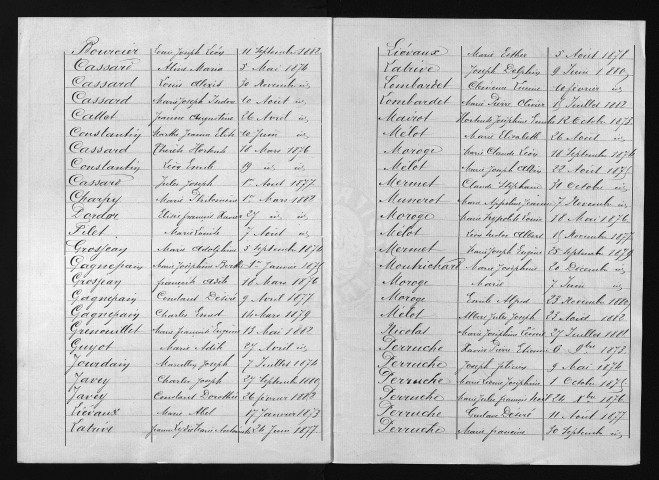 Bourcur Joseph Léon 11 Septembre 1882
Cassard Aline Maria 3 Mai 1874
Cassard Louis Alexis 30 Novembre id
Cassard Marie Joseph 10 Août id
Callot Jeanne Augustine 26 Avril id
Constantin Marthe Jeanne 20 Juin id
Cassard Hortense 18 Mars 1876
Constantin Léon Emile 19 id id
Cassard Jules Joseph 1er Août 1877
Charpy Marie Philomène 1er Mars 1882
Dordor 27 id id
Pilet Marie 7 Août id
Grosjean Marie Adolphine 5 Septembre 1874
Gagnepain Marie Joséphine Berthe 1er Janvier 1875
Grosjean François 16 Mars 1876
Gagnepain Constant Désiré 9 Avril 1877
Gagnepain Charles Ernest 14 Mars 1879
Grenouillet Marie François Eugène 13 Mai 1882
Guyot Marie Adèle 27 Avril id
Jourdain Marcellin Joseph 7 Juillet 1874
Javey Charles Joseph 27 Septembre 1880
Javey Constant Dorothée 26 février 1882
Liévaux Marie Abel 17 Janvier 1873
Latrive 24 Juin 1877
Liévaux Marie Esther 5 Août 1878
Latrive Joseph Delphin 9 Juin 1880
Lombardet Etienne id
Lombardet Marie Pierre Olivier 15 Juillet 1882
Mairot Hortense Joséphine 12 Octobre 1873
Mélot Marie Elisabeth 26 Août id
Moroge Marie Claude Léon 16 Septembre 1874
Mélot Marie Joseph 22 Août 1875
Mermet Claude Stéphanie 31 Octobre id
Munerot Marie Joséphine Jeanne 7 Novembre id
Moroge Marie Hippolyte 18 Mai 1876
Mélot Albert 15 Novembre 1877
Mermet Marie Joseph Eugène 25 Septembre 1879
Moutrichard Marie Joséphine 20 Décembre id
Moroge Marie 7 Juin id
Moroge Emile Alfred 23 Novembre 1880
Mélot Albert Jules Joseph 23 Avril 1882
Nicolas Marie Joséphine 27 Juillet 1881
Perruche Pierre Etienne 6 9bre 1873
Perruche Joseph 9 Mai 1874
Perruche Marie Joséphine 1 Octobre 1875
Perruche Marie Jules François 24 Xbre 1876
Perruche Gustave Désiré 11 Août 1877
Perruche Marie francine 30 Septembre id